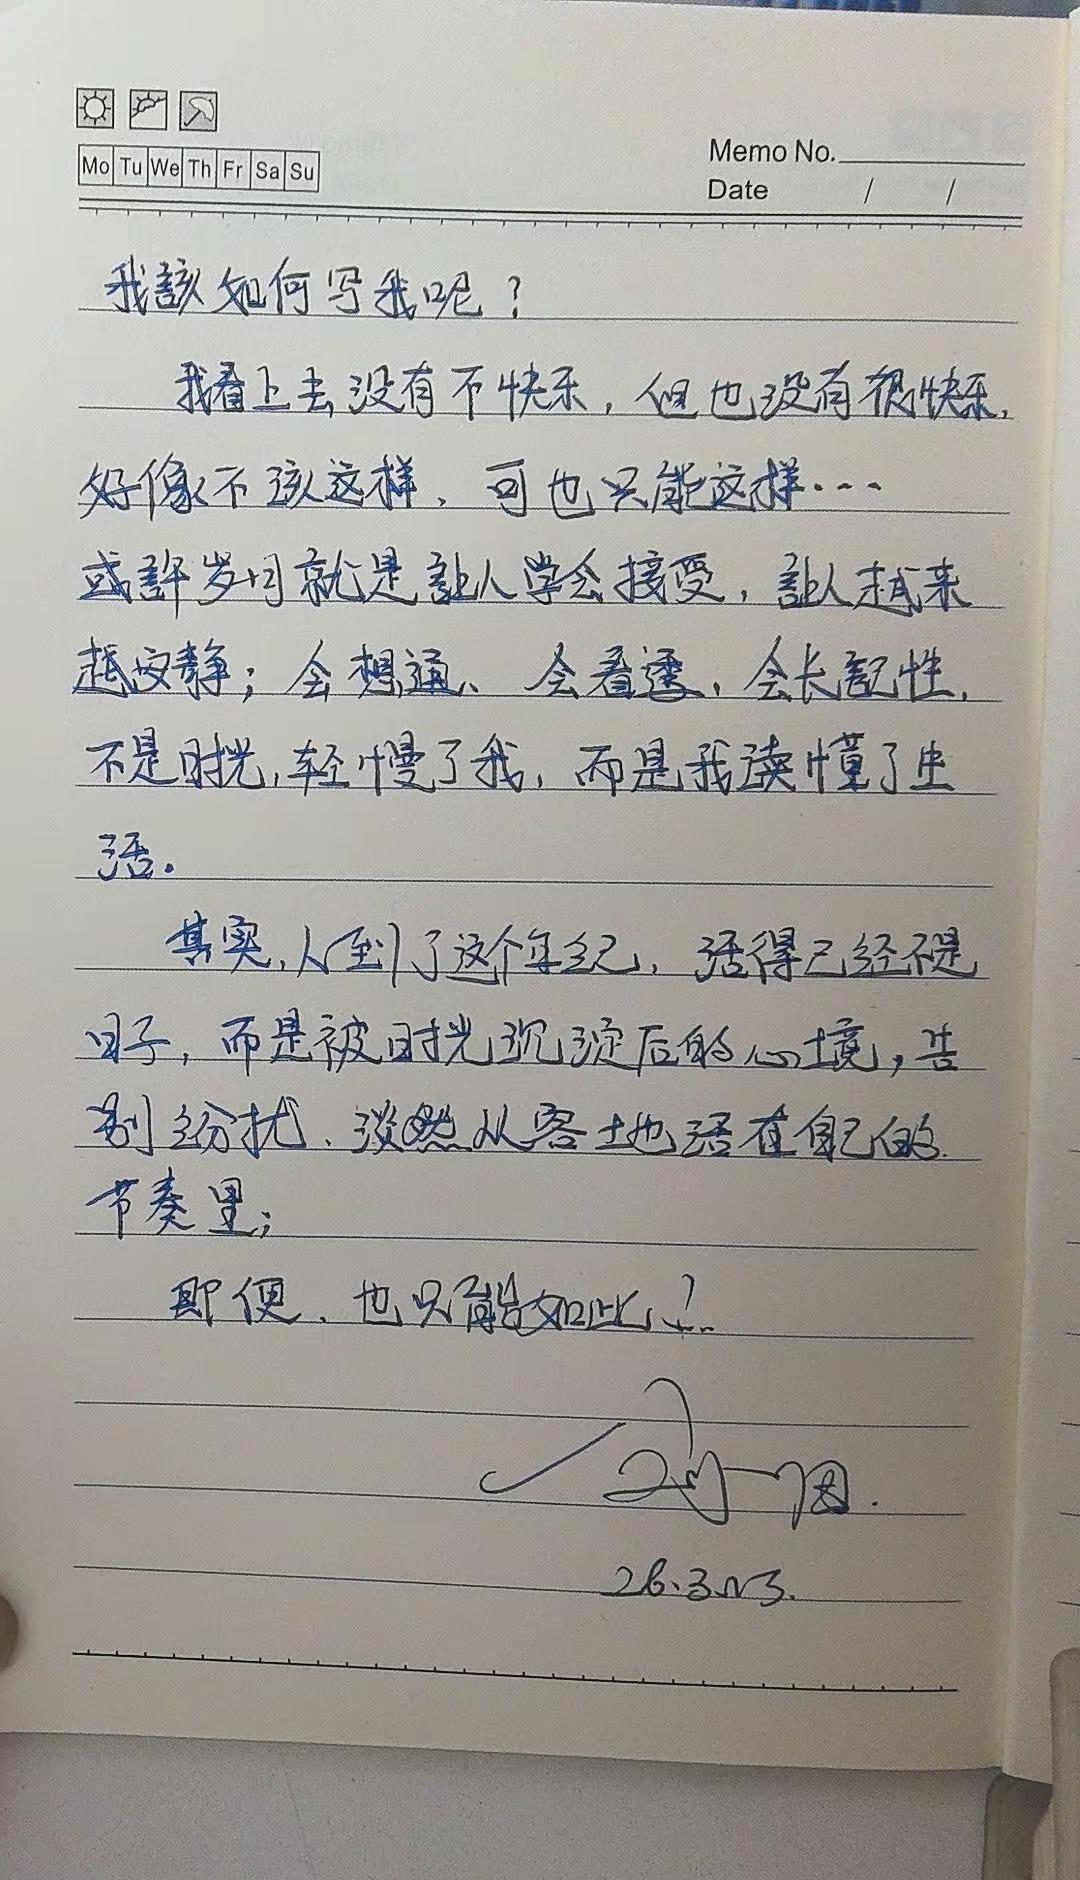 Mo Tu We Th Fr Sa Su
Memo No.
Date / /
我該如何写我呢？
我看上去没有不快乐，但也没有很快乐，
好像不该这样，可也只能这样···
或許岁月就是讓人学会接受，讓人越来
越安静；会想通、会看透、会长記性，
不是时光，轻慢了我，而是我读懂了生
活。
其实，人到了这个年纪，活得已经不是
日子，而是被时光沉淀后的心境，告
别纷扰、淡然从容地活在自己的
节奏里；
即便、也只能如此
26.3.